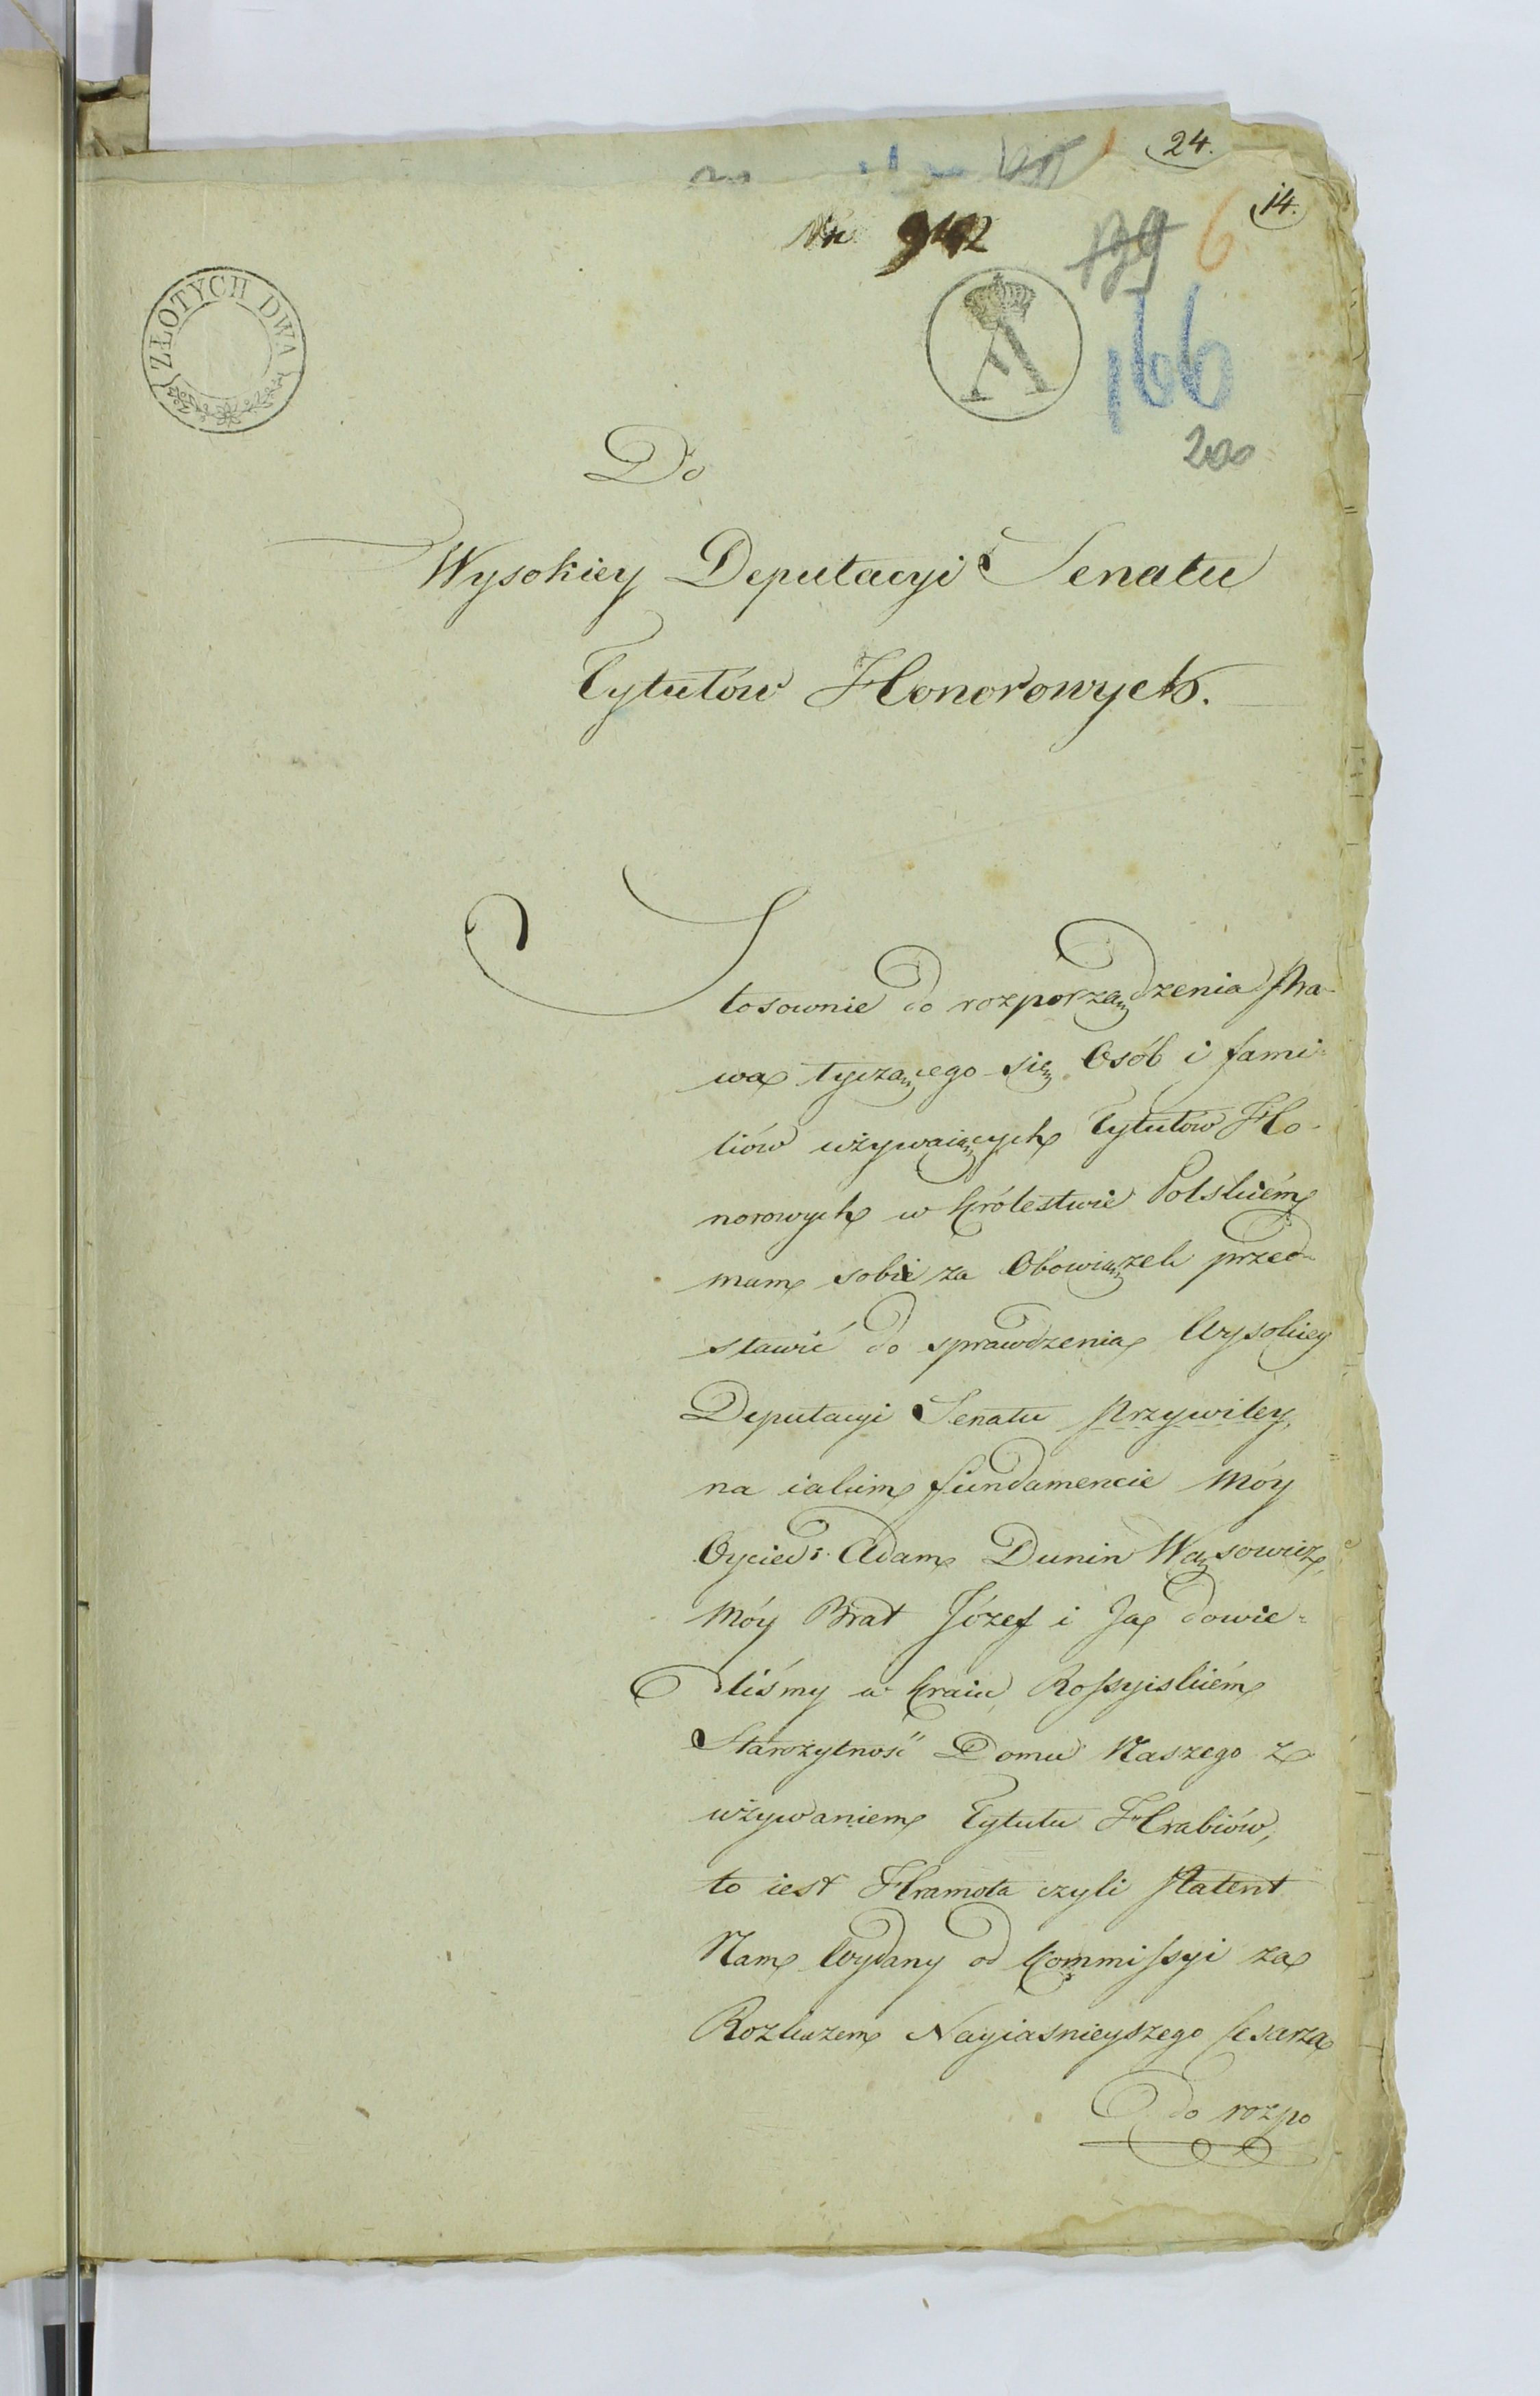 24.
14.
Nro 942
139
6
ZŁOTYCH DWA
A
166
200
Do
Wysokiey Deputacyi Senatu
Tytułów Honorowych.
Stosownie do rozporządzenia Pra-
wa tyczącego się Osób i fami-
liów używaiących Tytułów Ho-
norowych w Królestwie Polskiém
mam sobie za Obowiązek przed-
stawić do sprawdzenia Wysokiey
Deputacyi Senatu Przywiley,
na iakim fundamencie Móy
Oyciec Adam Dunin Wąsowicz,
Móy Brat Józef i Ja dowie-
dliśmy w Kraiu Rossyiskiém
Starożytność Domu Naszego z
używaniem Tytułu Hrabiów,
to iest Hramota czyli Patent
Nam Wydany od Kommissyi za
Rozkazem Nayiasnieyszego Cesarza
do rozpo